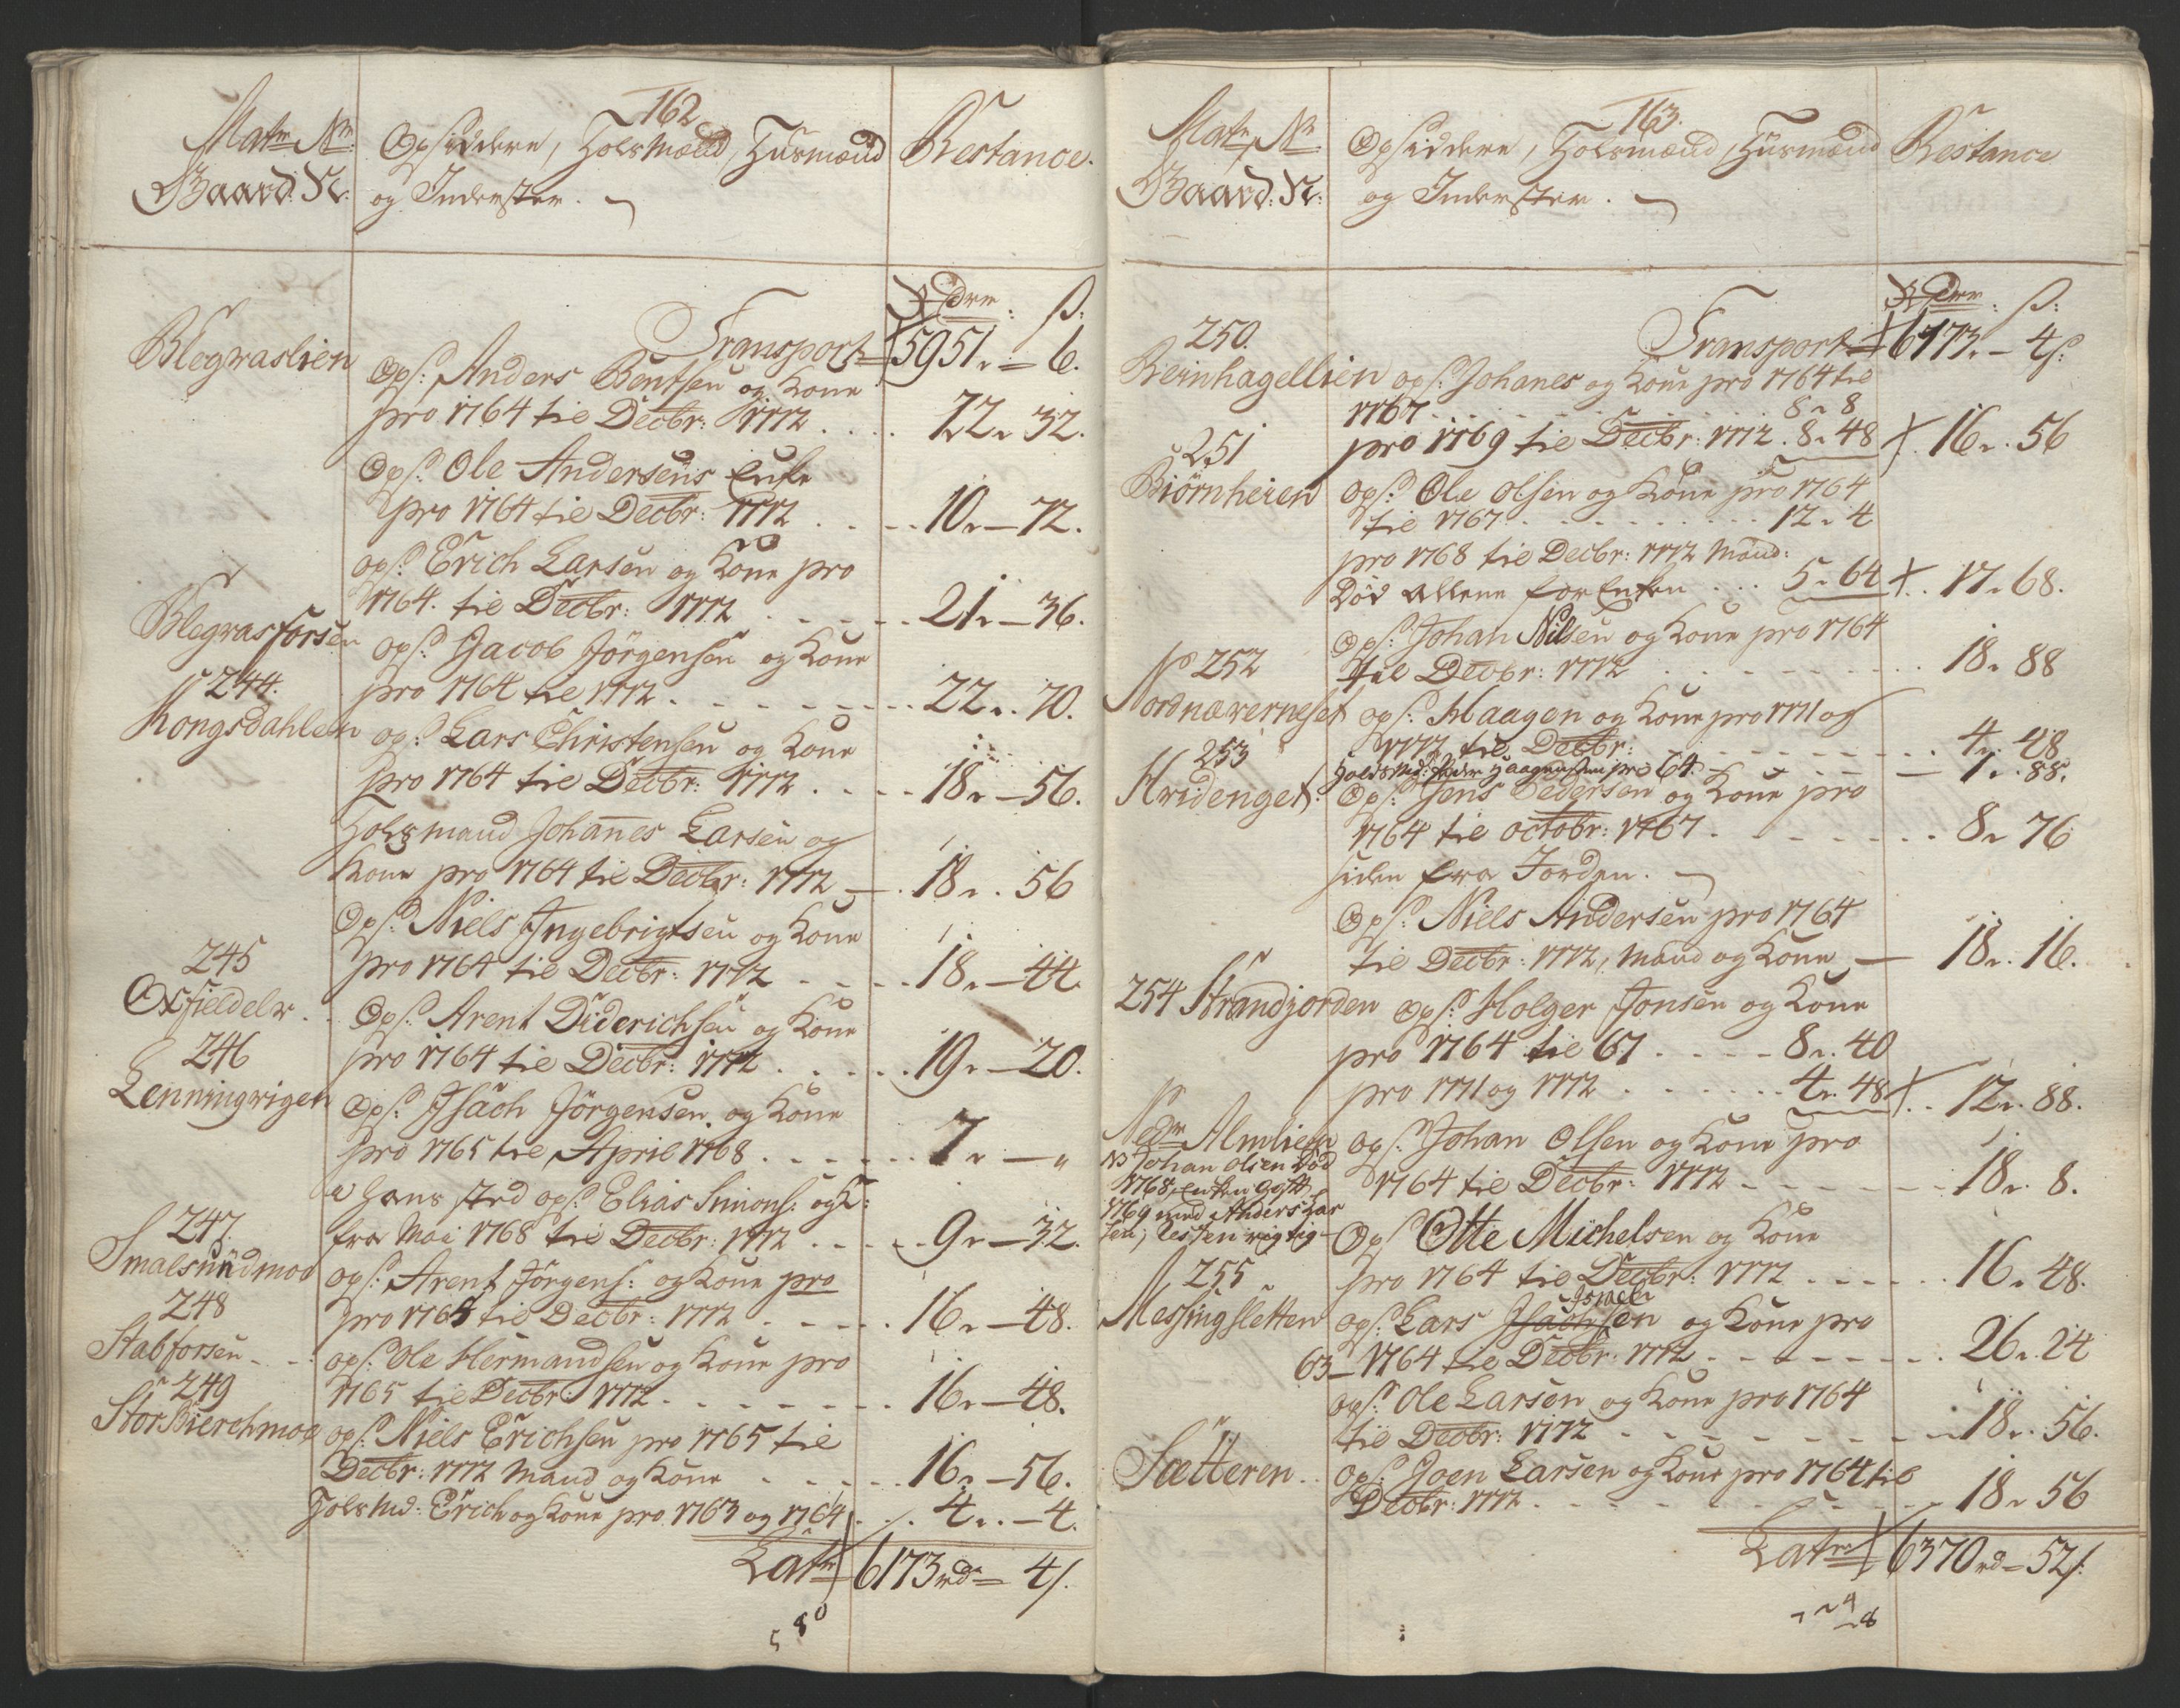 162
Matr Nr:
Gaard: N:
Opsiddere, Holsmænd, Husmænd
og Inderster.
Restance.
Rdr: ß:
Transport 5951 „ 6.
Blegraslien
Ops: Anders Bentsen og Kone
pro 1764 til Decbr: 1772 . . . . 22 „ 32.
Ops: Ole Andersens Enke
pro 1764 til Decbr: 1772 . . . . 10 „ 72.
ops: Erich Larsen og Kone pro
1764. til Decbr: 1772 . . . . . 21 „ 36.
Blegrasforsen
ops: Jacob Jörgensen og Kone
pro 1764 til 1772 . . . . . . . 22 „ 70.
244.
Kongsdahlen
op: Lars Christensen og Kone
pro 1764 til Decbr: 1772 . . . . 18 „ 56.
Holsmand Johanes Larsen og
Kone pro 1764 til Decbr: 1772 — . 18 „ 56
Ops: Niels Ingebrigtsen og Kone
pro 1764 til Decbr: 1772 . . . . 18 „ 44.
245
Oxfieldelv . .
Ops: Arent Diderichsen og Kone
pro 1764 til Decbr: 1772 . . . . . 19 „ 20.
246
Lenningrigen
Ops: Isach Jörgensen og Kone
pro 1765 til April 1768 . . . . . . 7 „ — „
i hans sted ops: Elias Simons: og K:
fra Mai 1768 til Decbr: 1772 . . . . . 9 „ 32.
247.
Smalsundmoe
ops: Arent Jörgens: og Kone pro
pro 1765 til Decbr: 1772 . . . . . 16 „ 48.
248
Stabforsen - -
ops: Ole Hermandsen og Kone pro
1765 til Decbr: 1772 . . . . . . . 16 „ 48.
249
StorBierchmoe
ops: Niels Erichsen pro 1765 til
Decbr: 1772 Mand og Kone . . . . . 16 „ 56.
Holsmd: Erich og Kone pro 1763 og 1764 . . . 4 „ 4.
Latr 6173 rd 4 ß.
163.
Matr Nr
Gaard: N:
Opsiddere, Holsmænd, Husmænd
og Inderster.
Restance
Rdr: ß:
Transport 6173 „ 4 ß:
250.
Reinhagellien ops: Johanes og Kone pro 1764 til
1767 . . . . . . . . . . 8 „ 8
pro 1769 til Decbr: 1772 . 8 „ 48 . 16 „ 56
251
Biörnheien ops: Ole Olsen og Kone pro 1764
til 1767 . . . . . . . . . . . 12 „ 4
pro 1768 til Decbr: 1772 Mand:
Död allene for Enken . . . 5 „ 64 . . 17 „ 68.
Ops: Johan Nilsen og Kone pro 1764
til Decbr: 1772 . . . . . . . . 18 „ 88
No 252
Nordnæverneset ops: Haagen og Kone pro 1771 og
1772 til Decbr: . . . . . . . . . 4 „ 48
Holdsmd: Peder Haagensen pro 64. — — — 1 „ 88.
253
Hvidenget. Ops: Jens Pedersen og Kone pro
1764 til octobr: 1767 . . . . . . 8 „ 76
siden fra Jorden.
Ops: Niels Andersen pro 1764
til Decbr: 1772, Mand og Kone — 18 „ 16.
254 Strandjorden ops: Holger Jonsen og Kone
pro 1764 til 67 . . . . - 8 „ 40
pro 1771 og 1772 . . . . . . 4 „ 48 . . 12 „ 88.
Nedr Almlien ops: Johan Olsen og Kone pro
1764 til Decbr: 1772 . . . . . . 18 „ 8.
NB Johan Olsen död
1768, Enken gift
1769 med Anders Lar
sen, Resten rigtig -
Ops: Otte Michelsen og Kone
pro 1764 til Decbr: 1772 . . . . . . 16 „ 48.
255.
Messingsletten
Israel
ops: Lars Isachsen og Kone pro
63 - 1764 til Decbr: 1772 . . . . . . . 26 „ 24
ops: Ole Larsen og Kone pro 1764
til Decbr: 1772 . . . . . . . . . 18 „ 56.
Sætteren . .
Ops: Joen Larsen og Kone pro 1764 til
Decbr: 1772 . . . . . . . . . . . . 18 „ 56
Latr 6370 rd 52 ß.